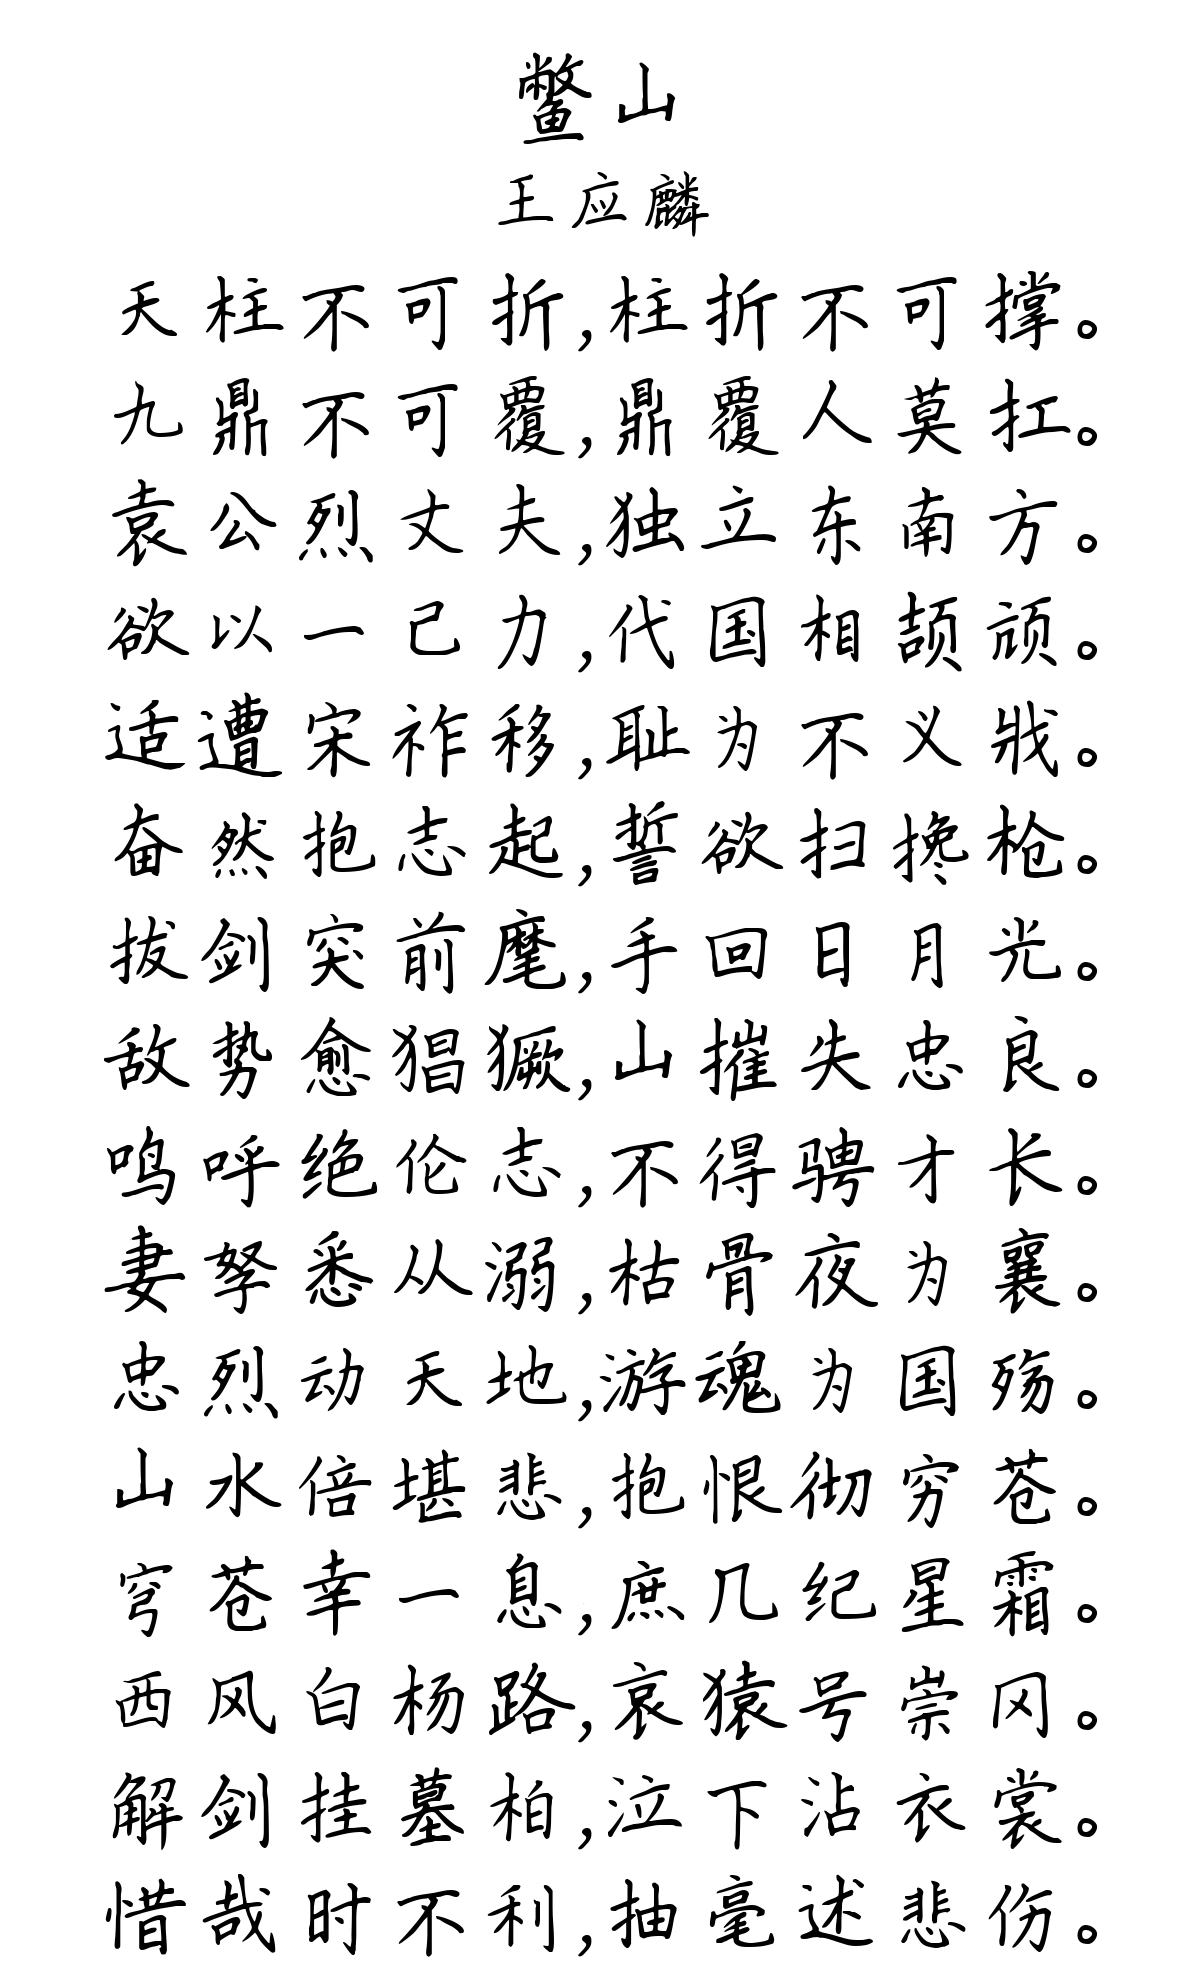 鳖山
王应麟
天柱不可折,柱折不可撑。
九鼎不可覆,鼎覆人莫扛。
袁公烈丈夫,独立东南方。
欲以一己力,代国相颉颃。
适遭宋祚移,耻为不义戕。
奋然抱志起,誓欲扫搀枪。
拔剑突前麾,手回日月光。
敌势愈猖獗,山摧失忠良。
鸣呼绝伦志,不得骋才长。
妻孥悉从溺,枯骨夜为襄。
忠烈动天地,游魂为国殇。
山水倍堪悲,抱恨彻穷苍。
穹苍幸一息,庶几纪星霜。
西风白杨路,哀猿号崇冈。
解剑挂墓柏,泣下沾衣裳。
惜哉时不利,抽毫述悲伤。